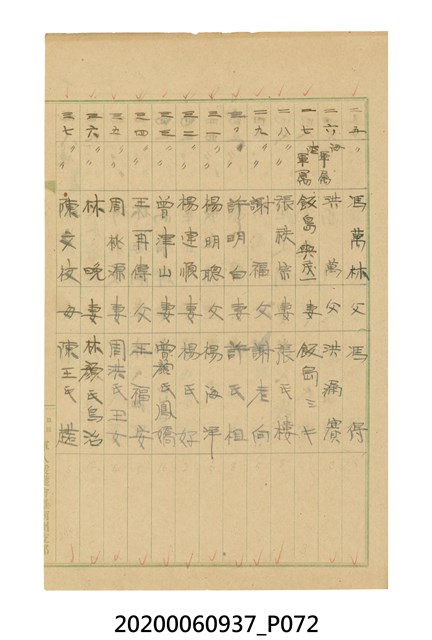 二五 馮萬林 父 馮得
二六 海軍屬 洪萬 父 洪漏賽
二七 陸軍屬 飯島典茂 妻 飯島ミキ
二八 〃 〃 張秩宗 妻 張氏棲
二九 〃 〃 謝福 父 謝老向
三〇 〃 〃 許明白 妻 許氏但
三一 〃 〃 楊明聰 父 楊海平
三二 〃 〃 楊建順 妻 楊氏好
三三 〃 〃 曾津山 妻 曾顏氏鳳嬌
三四 〃 〃 王再傳 父 王福安
三五 〃 〃 周桃源 妻 周洪氏玉女
三六 〃 〃 林晚 妻 林顏氏烏治
三七 〃 〃 陳文 母 陳王氏
20200060937_P072